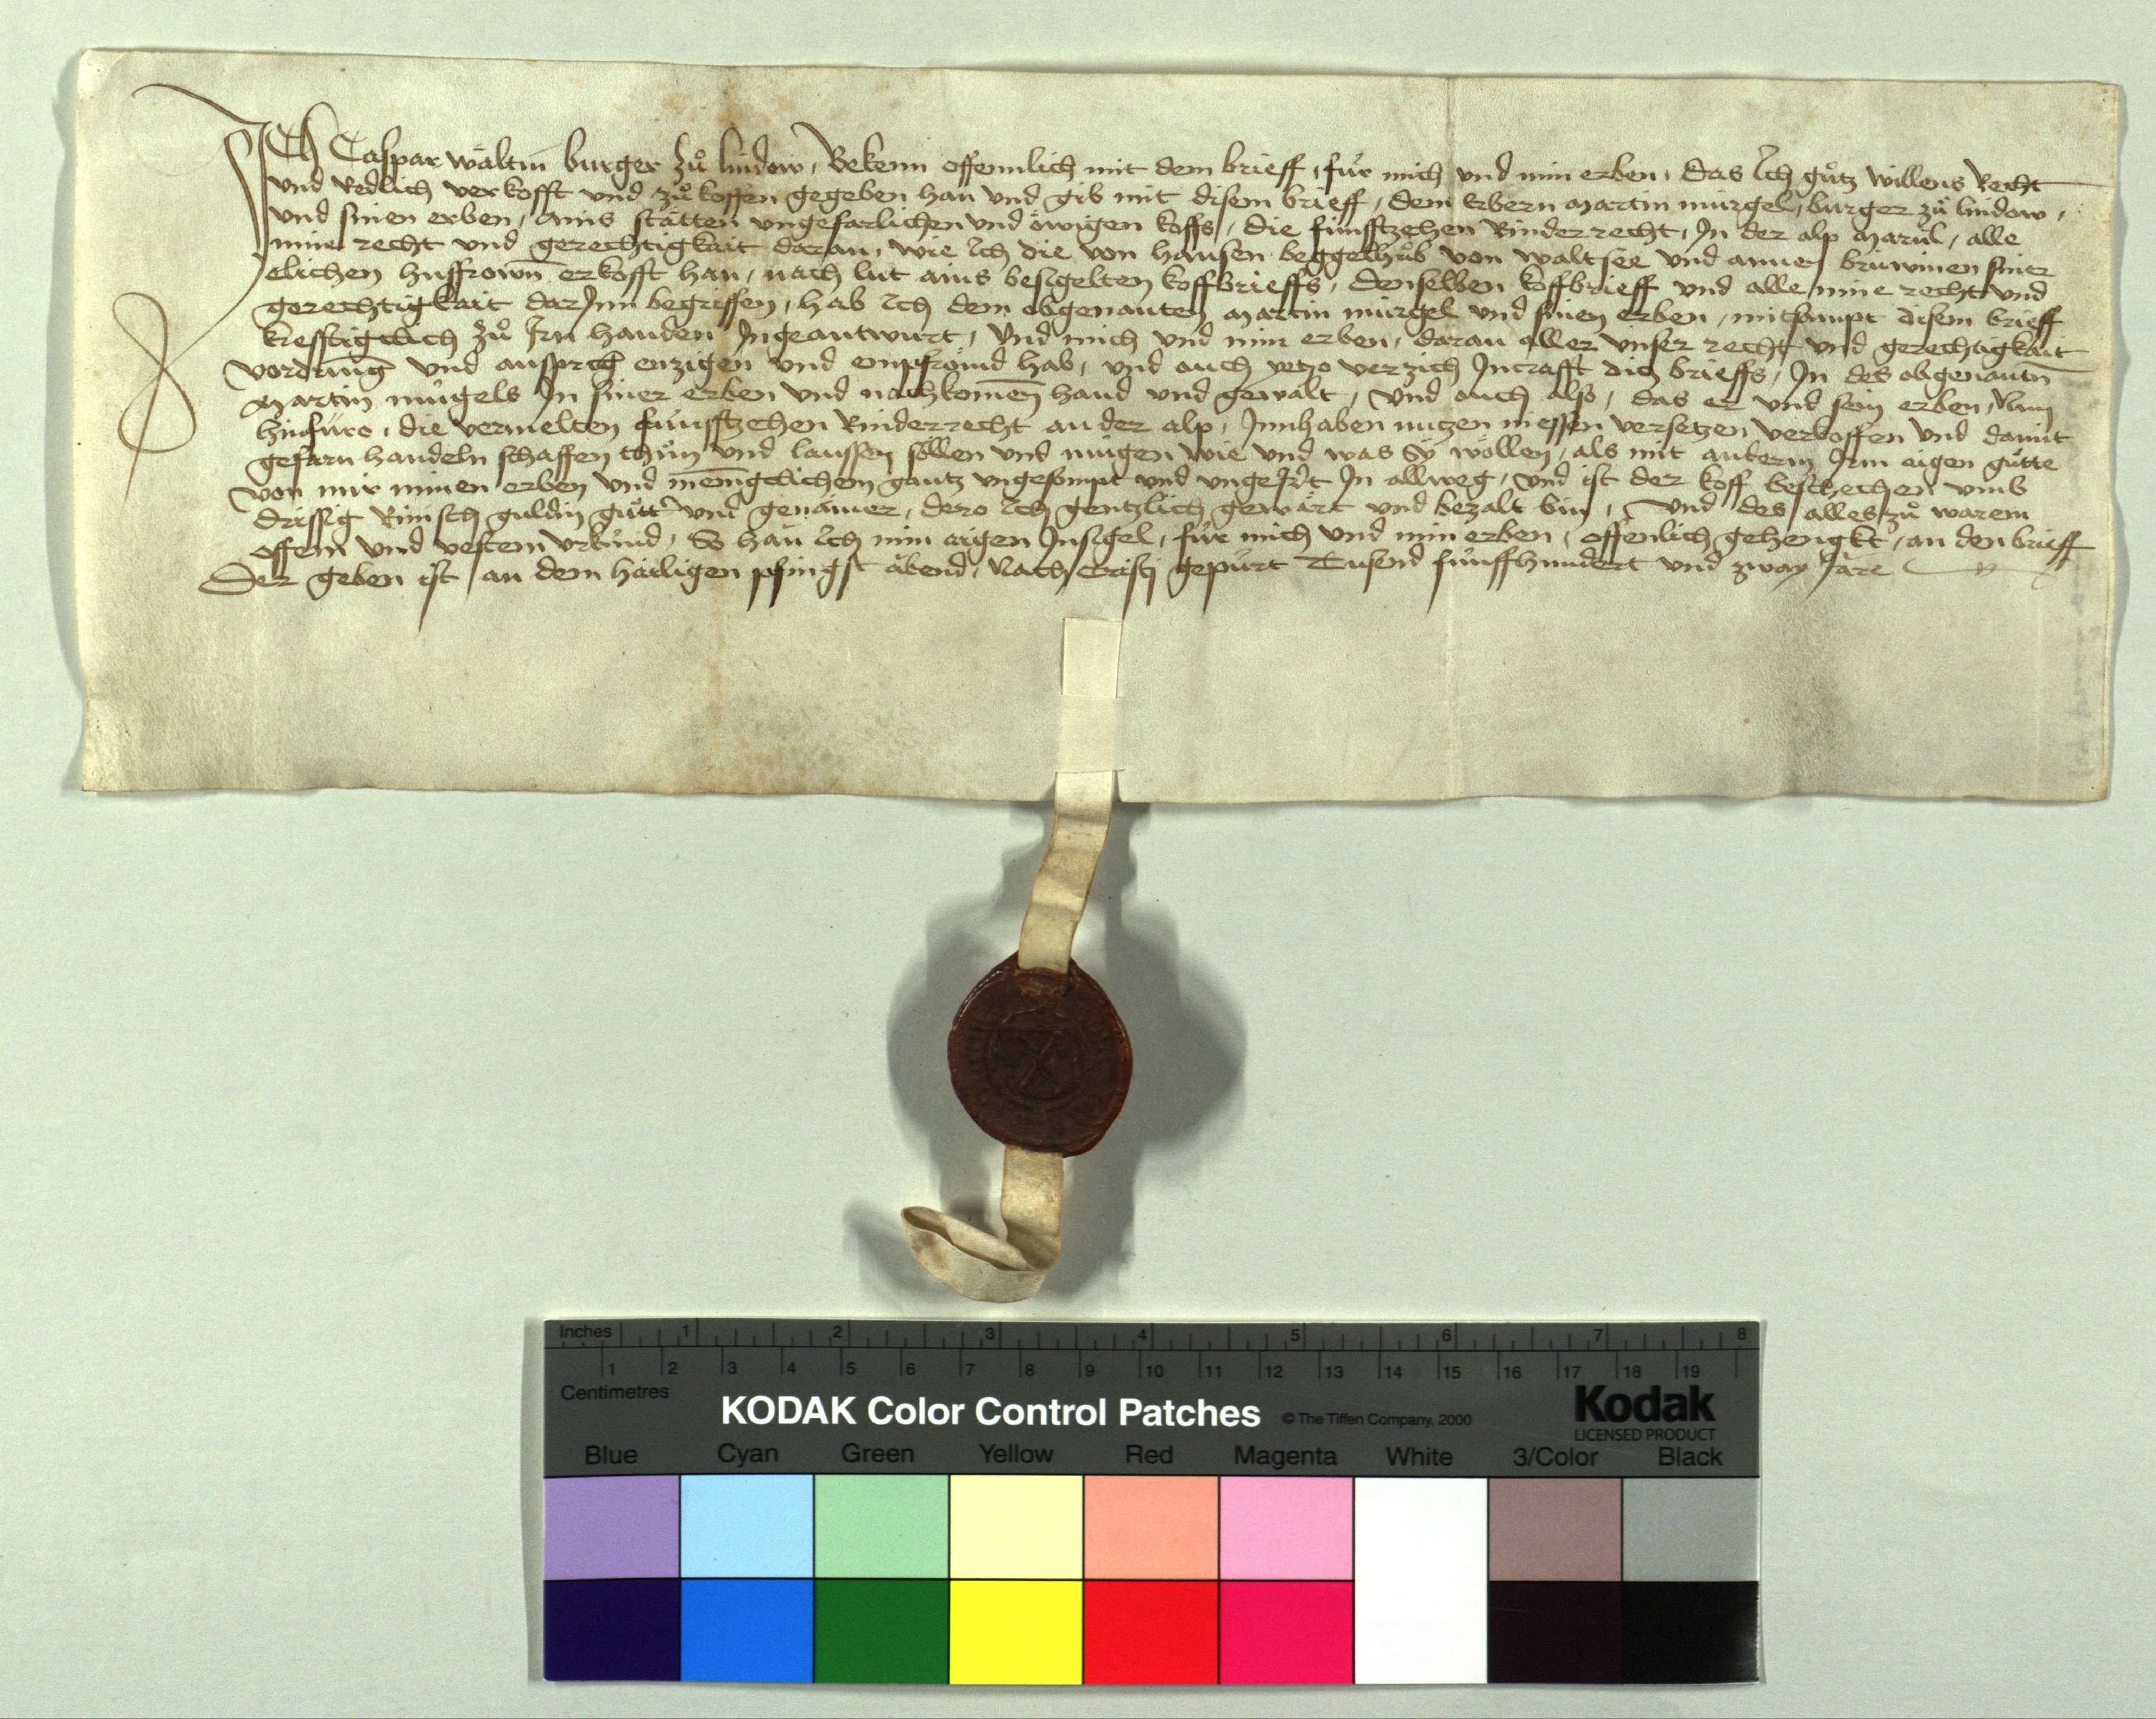 Ich Caspar wältin burger zů lindow, Bekenn offennlich mit dem brieff, für mich und min erben, das Ich gůtz willens Recht
und Redlich verkofft und zů koffen gegeben han und gib mit disem brieff, dem erbern martin mürgel, burger zů lindow,
und sinen erben, ains stätten ungefarlichen und öwigen koffs, die fünffzehen Rinderrecht, In der alp marul, alle
mine recht und gerechtigkait daran, wie Ich die von hansen beggelhůb von waltsee und annen brüwinen siner
elichen hussfrown erkofft han, nach lut ains besigelten koffbrieffs, denselben koffbrieff und alle mine recht und
gerechtigkait darInn begriffen, hab Ich dem obgenanten martin mürgel und sinen erben, mitsampt disem brieff
krefftigclich zů Irn handen Ingeantwurt, Und mich und min erben, daran aller unser recht und gerechtigkait
vordrung und ansprch enzigen und empfrömd hab, und auch yetzo verzich Incrafft diß brieffs, In des obgenantn
martin mürgels In siner erben und nachkomen hand und gewalt, Und auch also, das er und sein erben, Nun
hinfüro, die vermelten fünffzehen Rinderrecht an der alp, Innhaben nutzen niessen versetzen verkoffen und damit
gefarn handeln schaffen thůn und laussen söllen und mügen wie und was Sy wöllen, als mit anderm Irm aigen gůtte
von mir minen erben und mengclichem gantz ungesompt und ungeIrt In allweg, Und ist der koff beschechen umb
drissig Rinisch guldin gůtter und genämer, dero Ich gentzlich gewärt und bezalt bin, Und des alles zů warem
offem und vestem urkünd, So han Ich min aigen Insigel, für mich und min erben, offenlich gehengkt, an den brieff
Der geben ist an dem hailigen pfingst äbend, Nach cristj gepürt Tusend fünffhundert und zway Jare
Inches 1 2 3 4 5 6 7 8
1 2 3 4 5 6 7 8 9 10 11 12 13 14 15 16 17 18 19
Centimetres
KODAK Color Control Patches © The Tiffen Company, 2000 Kodak
LICENSED PRODUCT
Blue Cyan Green Yellow Red Magenta White 3/Color Black